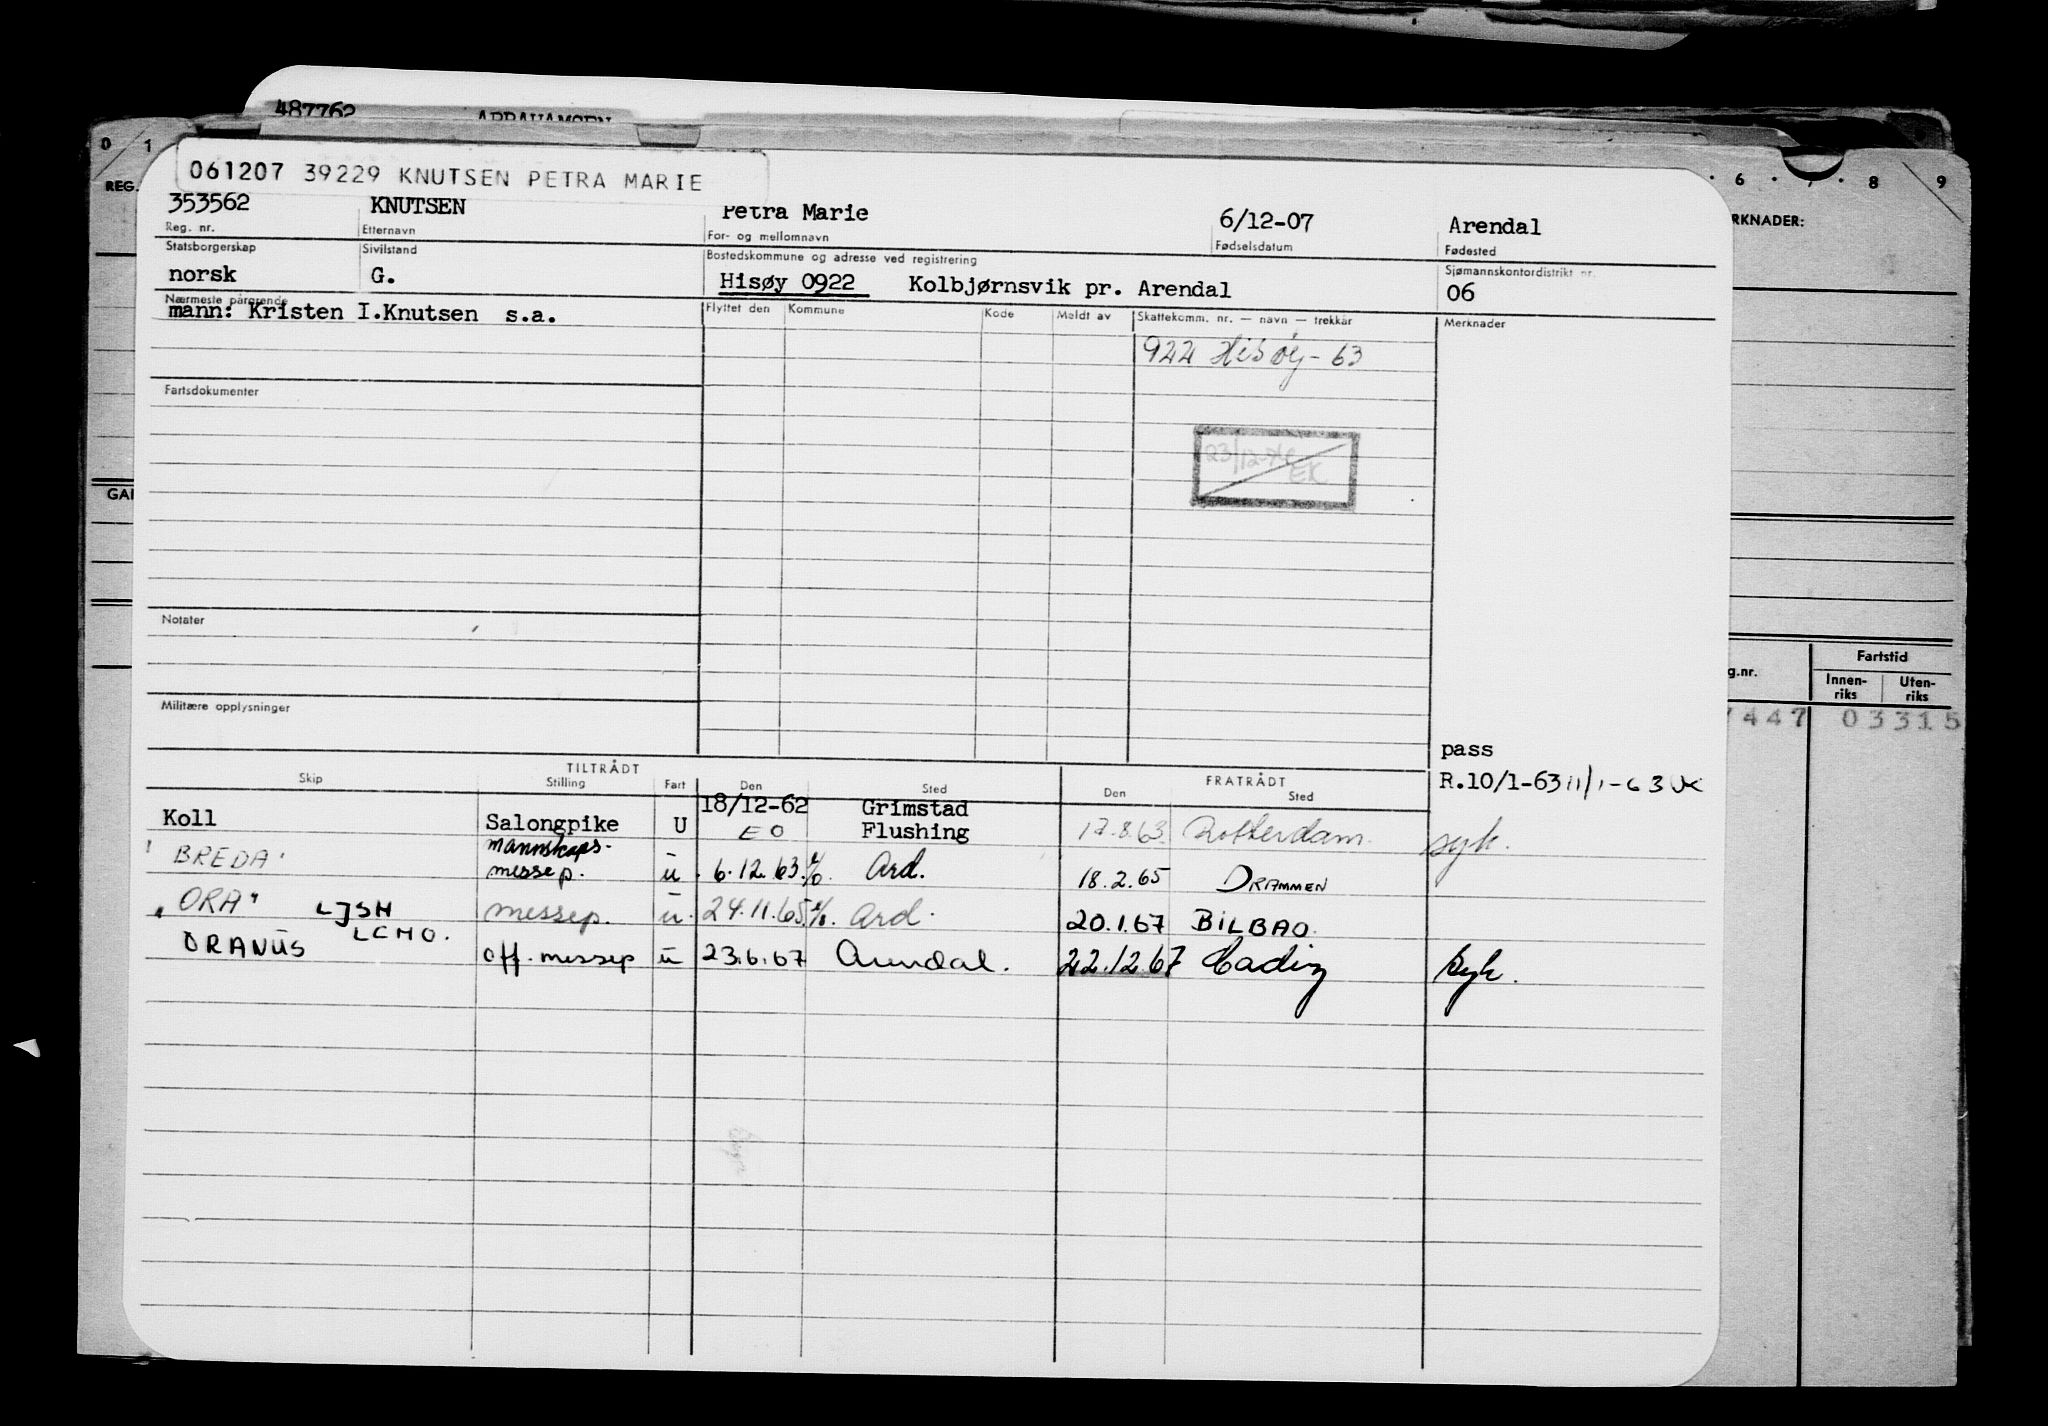 487762 ABRAHAMSEN
0 1 6 7 8 9
REG. RKNADER:
061207 39229 KNUTSEN PETRA MARIE
353562 KNUTSEN Petra Marie 6/12-07 Arendal
Reg. nr. Etternavn For- og mellomnavn Fødselsdatum Fødested
Statsborgerskap Sivilstand Bostedskommune og adresse ved registrering Sjømannskontordistrikt nr.
norsk G. Hisøy 0922 Kolbjørnsvik pr. Arendal 06
Nærmeste pårørende Flyttet den Kommune Kode Meldt av Skattekomm. nr. — navn — trekkår Merknader
mann: Kristen I.Knutsen s.a.
922 Hisøy - 63
Fartsdokumenter
23/12-74 EK
GAI
Notater
Fartstid
g.nr. Innen-riks Uten-riks
Militære opplysninger
7447 03315
pass
R.10/1-63 11/1-63
TILTRÅDT FRATRÅDT
Skip Stilling Fart Den Sted Den Sted
18/12-62 Grimstad
Koll Salongpike U EO Flushing 17.8.63 Rotterdam. syk.
"BREDA" mannskaps-
messep. u 6.12.63 Ard. 18.2.65 DRAMMEN
"ORA" LJSH messep. u. 24.11.65 Ard. 20.1.67 BILBAO.
LCHO.
ORANUS off. messep u 23.6.67 Arendal. 22.12.67 Cadiz syk.